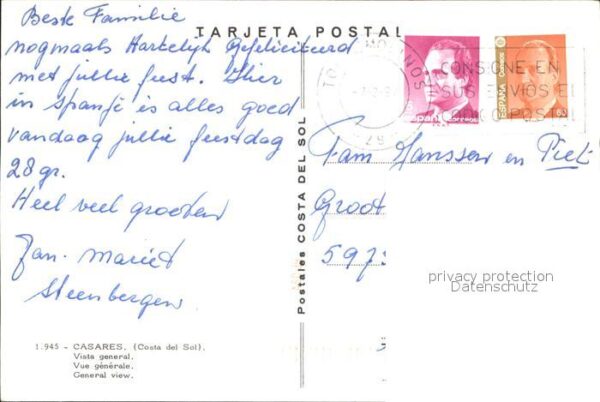 TARJETA POSTAL
Beste Familie
nogmaals Hartelijk Gefeliciteerd
met jullie feest. Hier
in Spanje is alles goed
vandaag jullie feestdag
28 gr.
Heel veel groeten
Jan. Mariet
Steenbergen
1.945 - CASARES. (Costa del Sol).
Vista general.
Vue générale.
General view.
Postales COSTA DEL SOL
CONSIGNE EN
SUS ENVIOS EL
POSTAL
España Correos
ESPAÑA Correos
Fam Janssen en Piet
Groot
5973
privacy protection
Datenschutz